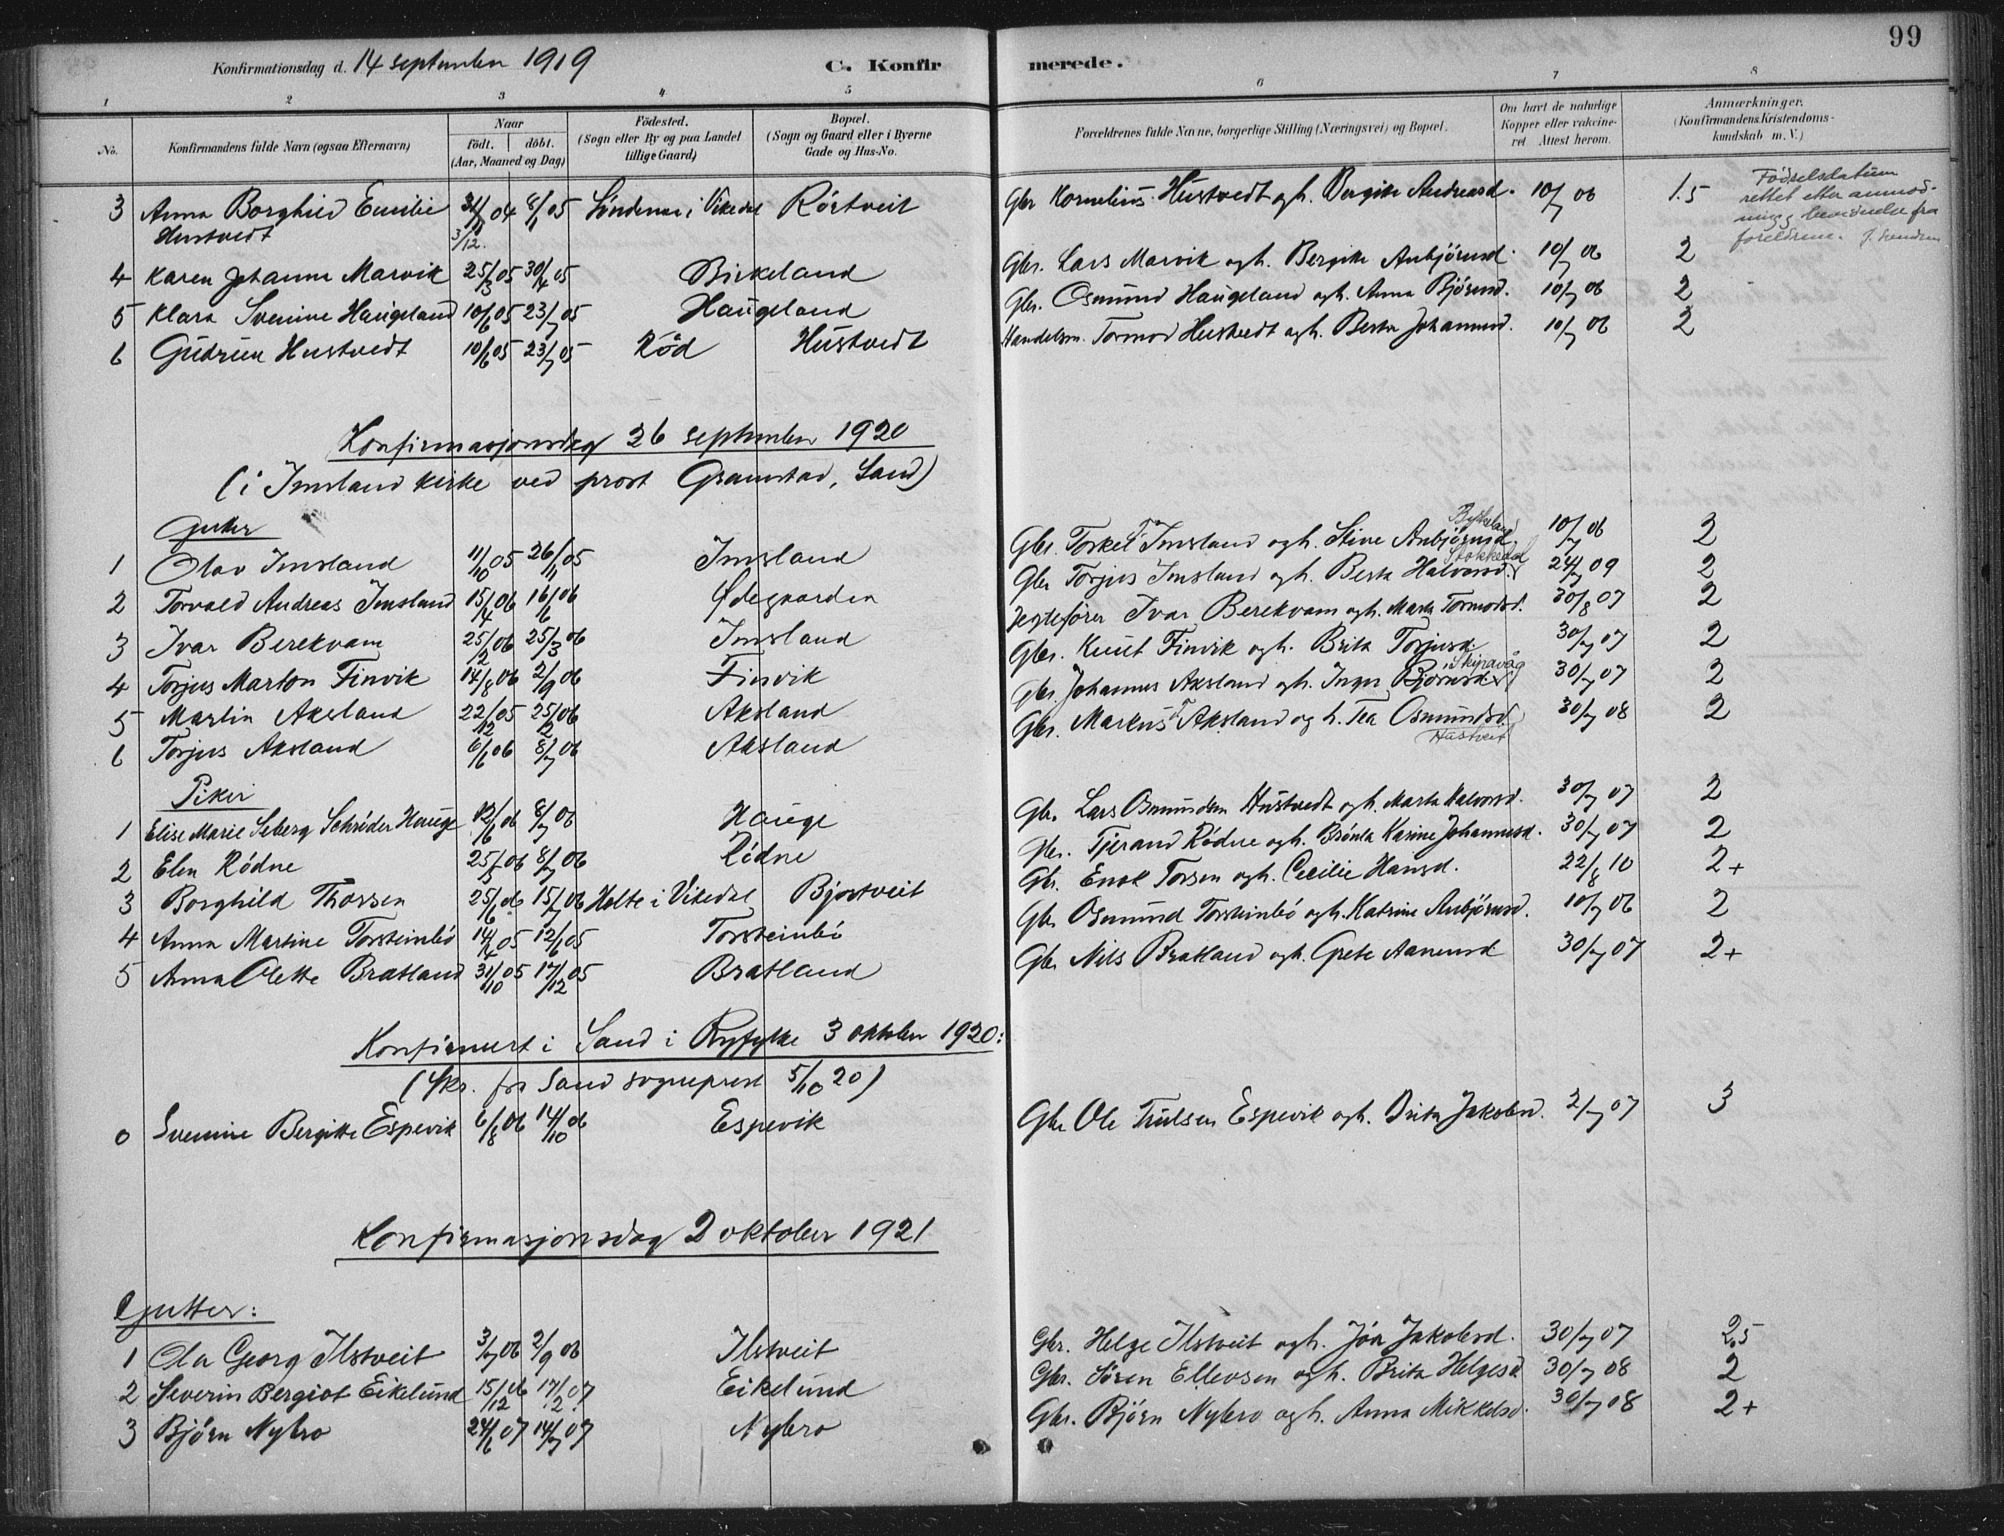 99
Konfirmationsdag d. 14 september 1919 C. Konfirmerede.
1 2 3 4 5 6 7 8
No. Konfirmandens fulde Navn (ogsaa Efternavn) Naar födt. döbt. (Aar, Maaned og Dag) Födested. (Sogn eller By og paa Landet tillige Gaard) Bopæl. (Sogn og Gaard eller i Byerne Gade og Hus-No. Forældrenes fulde Navne, borgerlige Stilling (Næringsvei) og Bopæl. Om havt de naturlige Kopper eller vaccineret Attest herom. Anmærkninger. (Konfirmandens Kristendomskundskab m. V.)
3 Anna Borghild Emilie Hustvedt 31/12 04 8/1 05 Söndenaa i Vikedal Röstveit Gbr Kornelius Hustvedt og h. Bergitte Andreasd. 10/7 06 1.5 Födselsdatum rettet etter anmodning og bevidnelse fra foreldrene.
4 Karen Johanne Marvik 25/3 05 30/4 05 Birkeland Gbr. Lars Marvik og h. Bergitte Anbjörnsd. 10/7 06 2
5 Klara Svenine Haugeland 10/6 05 23/7 05 Haugeland Gbr. Osmund Haugeland og h. Anna Björnsd. 10/7 06 2
6 Gudrun Hustvedt 10/6 05 23/7 05 Röd Hustvedt Handelsm. Tormod Hustvedt og h. Berta Johannesd. 10/7 06 2
Konfirmasjonsdag 26 september 1920
(i Imsland kirke ved prost Gramstad, Sand)
Gutter
1 Olav Imsland 11/10 05 26/11 05 Imsland Gbr. Torkel T. Imsland og h. Stine Anbjörnsd. 10/7 06 2
2 Torvald Andreas Imsland 15/4 06 16/6 06 Ødegaarden Gbr Torjus Imsland og h. Berta Halvorsd. Stokkedal 24/7 09 2
3 Ivar Berekvam 25/2 06 25/3 06 Imsland Jegtefører Ivar Berekvam og h. Marta Tormodsd. 30/8 07 2
4 Torjus Marton Finvik 14/8 06 2/9 06 Finvik Gbr. Knut Finvik og h. Brita Torjusd 30/7 07 2
5 Martin Aksland 22/12 05 25/2 06 Aksland Gbr Johannes Aksland og h. Inger Björnsd. 30/7 07 2
6 Torjus Aksland 6/6 06 8/7 06 Aksland Gbr. Markus T Aksland og h. Tea Osmundsd. Hustveit 30/7 08 2
Piker
1 Elise Marie Seberg Schröder Hauge 12/6 06 8/7 06 Hauge Gbr. Lars Osmundsen Hustvedt og h. Marta Halvorsd. 30/7 07 2
2 Elen Rödne 25/5 06 8/7 06 Rödne Gbr. Tjerand Rödne og h. Brönla Karine Johannesd. 30/7 07 2
3 Borghild Thorsen 25/6 06 15/7 06 Holte i Vikedal Bjortveit Gbr. Enok Torsen og h. Cecilie Hansd. 22/8 10 2+
4 Anna Martine Torsteinbö 14/4 05 12/6 05 Torsteinbö Gbr Osmund Torsteinbö og h. Katrine Anbjörnsd. 10/7 06 2
5 Anna Olette Bratland 31/10 05 17/12 05 Bratland Gbr Nils Bratland og h. Grete Aanensd 30/7 07 2+
Konfirmert i Sand i Ryfylke 3 oktober 1920:
(Skr. fra Sand sogneprest 5/10 20)
0 Svenine Bergitte Espevik 6/8 06 14/10 06 Espevik Gbr Ole Trulsen Espevik og h. Brita Jakobsd. 2/7 07 3
Konfirmasjonsdag 2 oktober 1921
Gutter:
1 Ola Georg Ilstveit 3/7 06 2/9 06 Ilstveit Gbr. Helge Ilstveit og h. Jøa Jakobsd. 30/7 07 2.5
2 Severin Bergiot Eikelund 15/12 06 17/2 07 Eikelund Gbr. Sören Ellevsen og h. Brita Helgesd 30/7 08 2
3 Björn Nybro 24/6 07 14/7 07 Nybro Gbr. Björn Nybro og h. Anna Mikkelsd. 30/7 08 2+